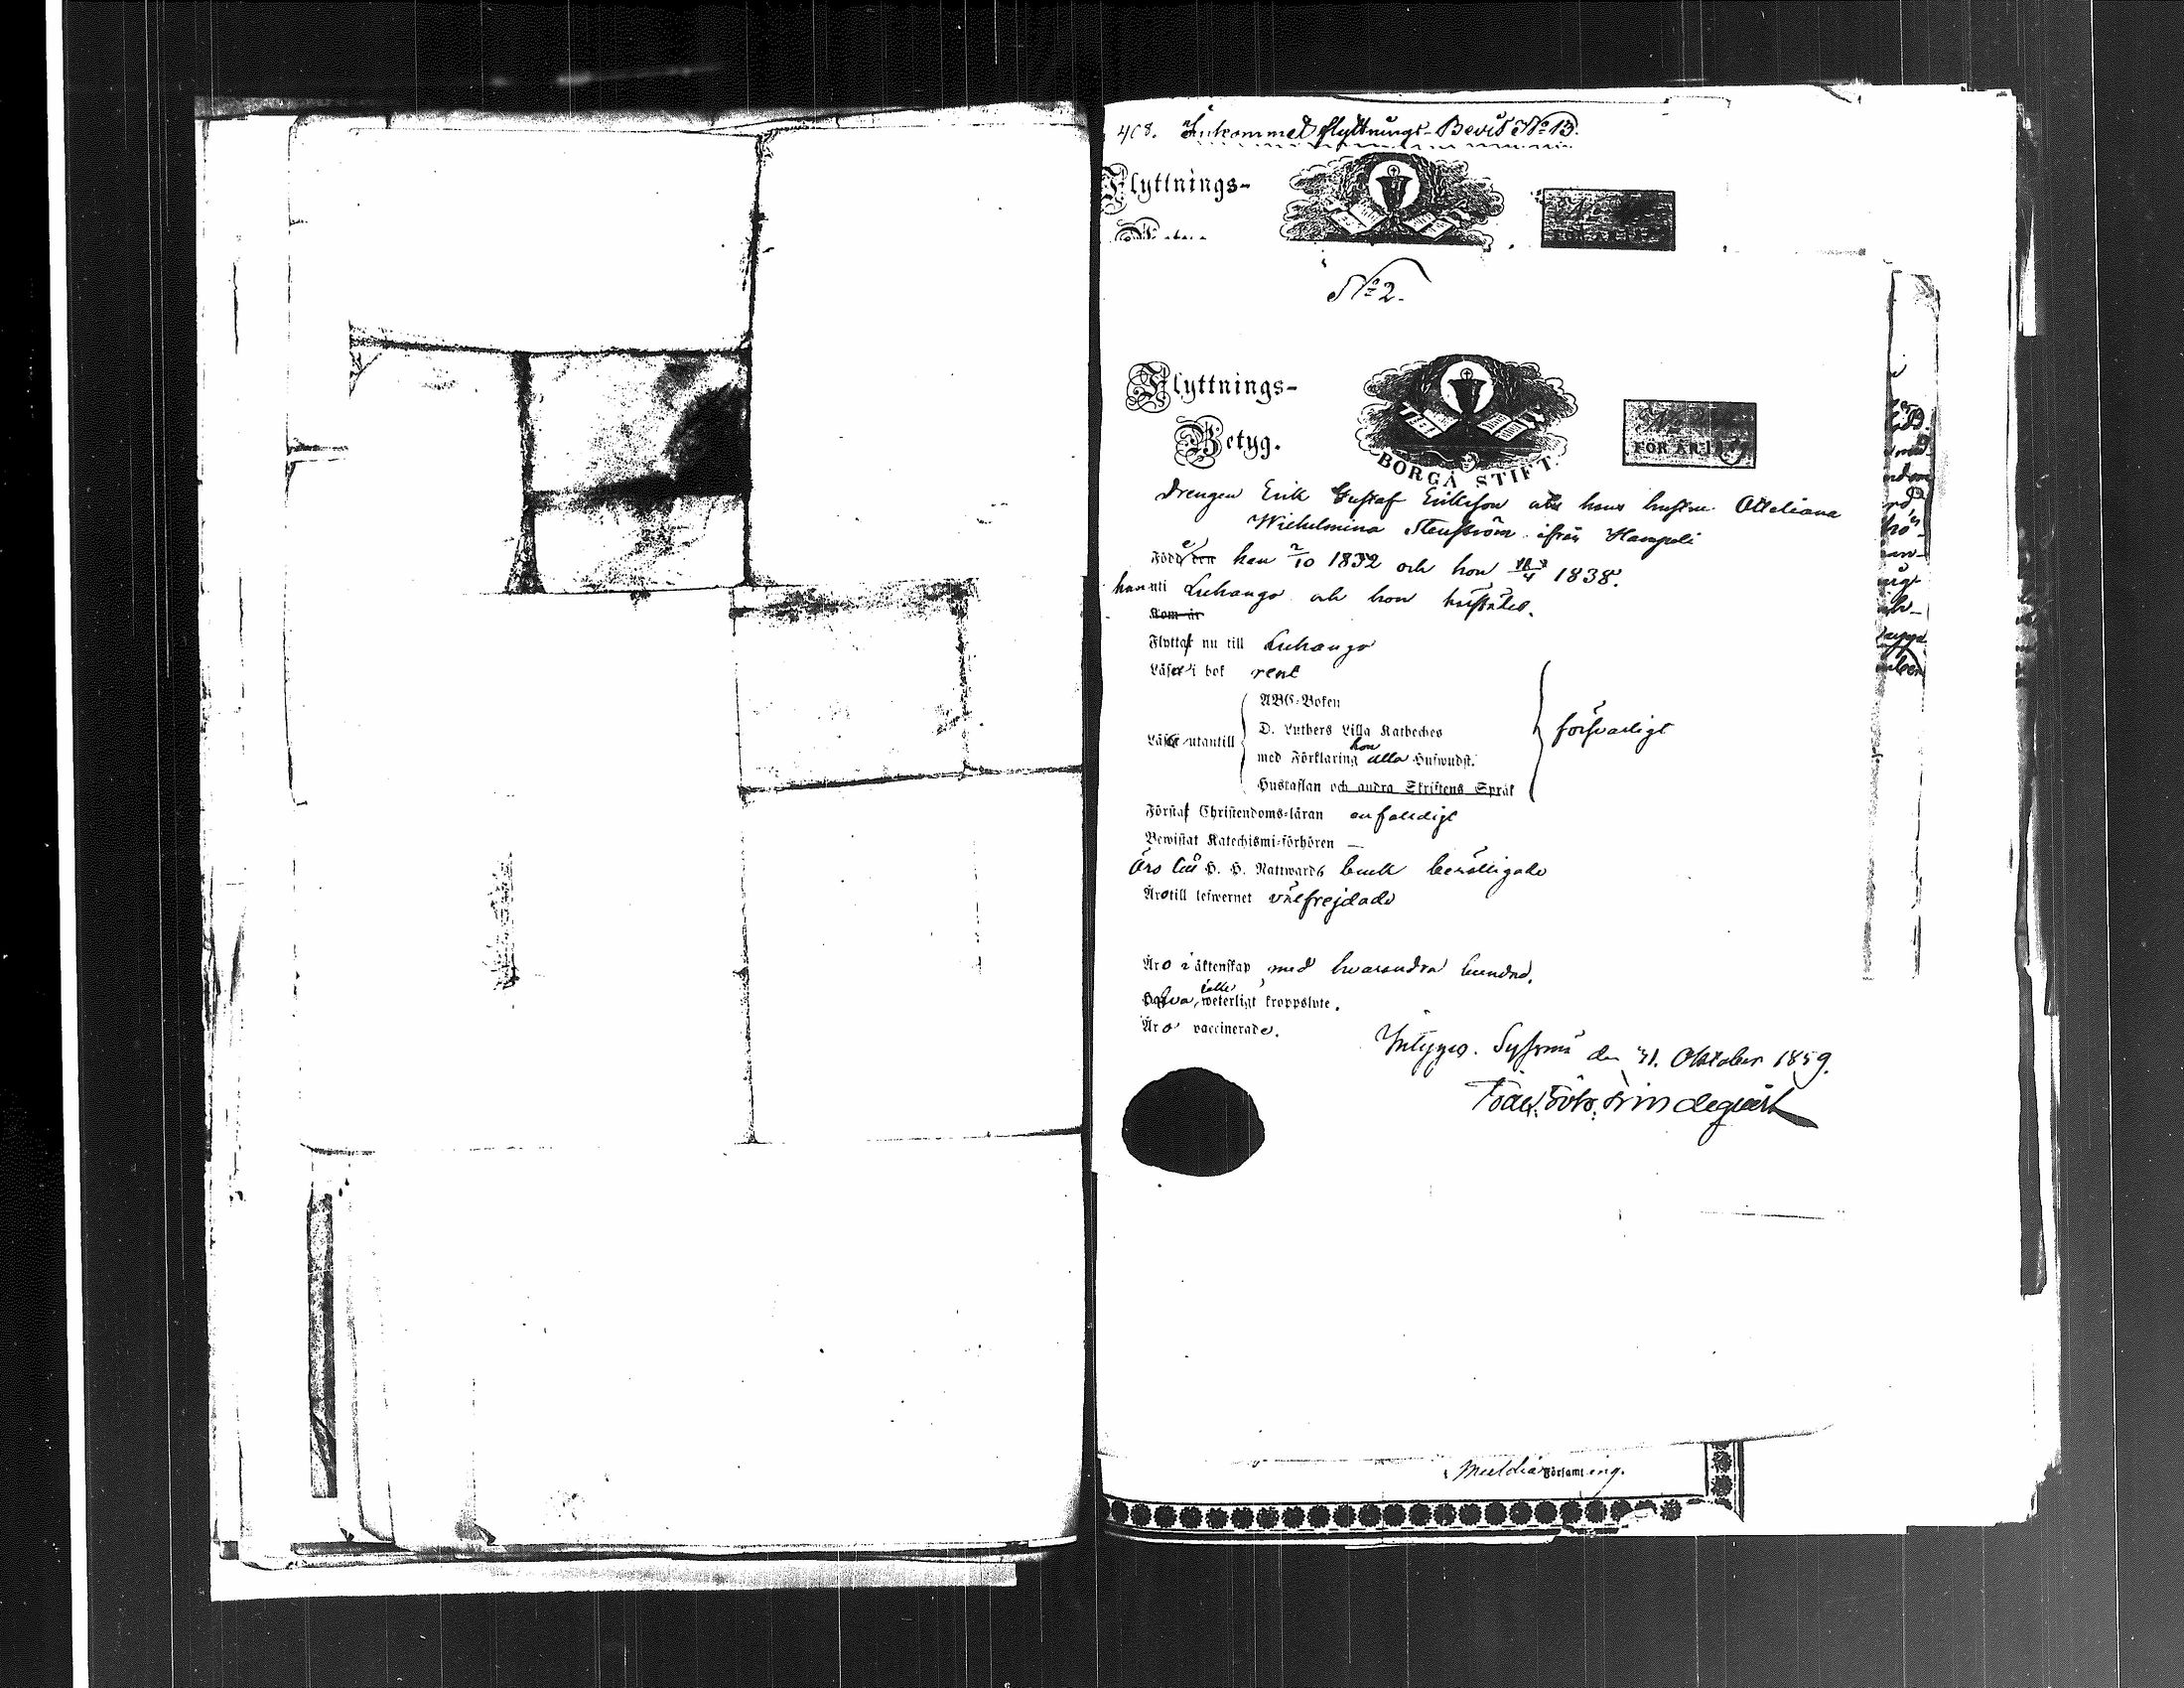 408. Inkommet flyttnings-Bevis No 13.
Flyttnings-
No 2.
Flyttnings-
Betyg.
BORGÅ STIFT.
FÖR ÅR 18
Drengen Erik Gustaf Eriksson och hans hustru Ottiliana
Wilhelmina Stenström ifrån Hangoli
Född den han 2/10 1832 och hon /4 1838.
han uti Luhango och hon härstädes.
Kom år
Flyttar nu till Luhango
Läser i bok rent
ABC-Boken
D. Luthers Lilla Katheches
hon
med Förklaring alla Hufwudst.
Läser utantill
försvarligt
Hustaflan och andra Skriftens Språk
Förstår Christendoms-läran enfaldigt
Bewistat Katechismi-förhören —
Äro till H. H. Nattwards bruk berättigade
Äro till lefwernet välfrejdade
Äro i äktenskap med hvarandra bundna.
Hafva, weterligt kroppslyte.
Äro vaccinerade.
Intygas. Sysmä den 31. Oktober 1859.
Församling.